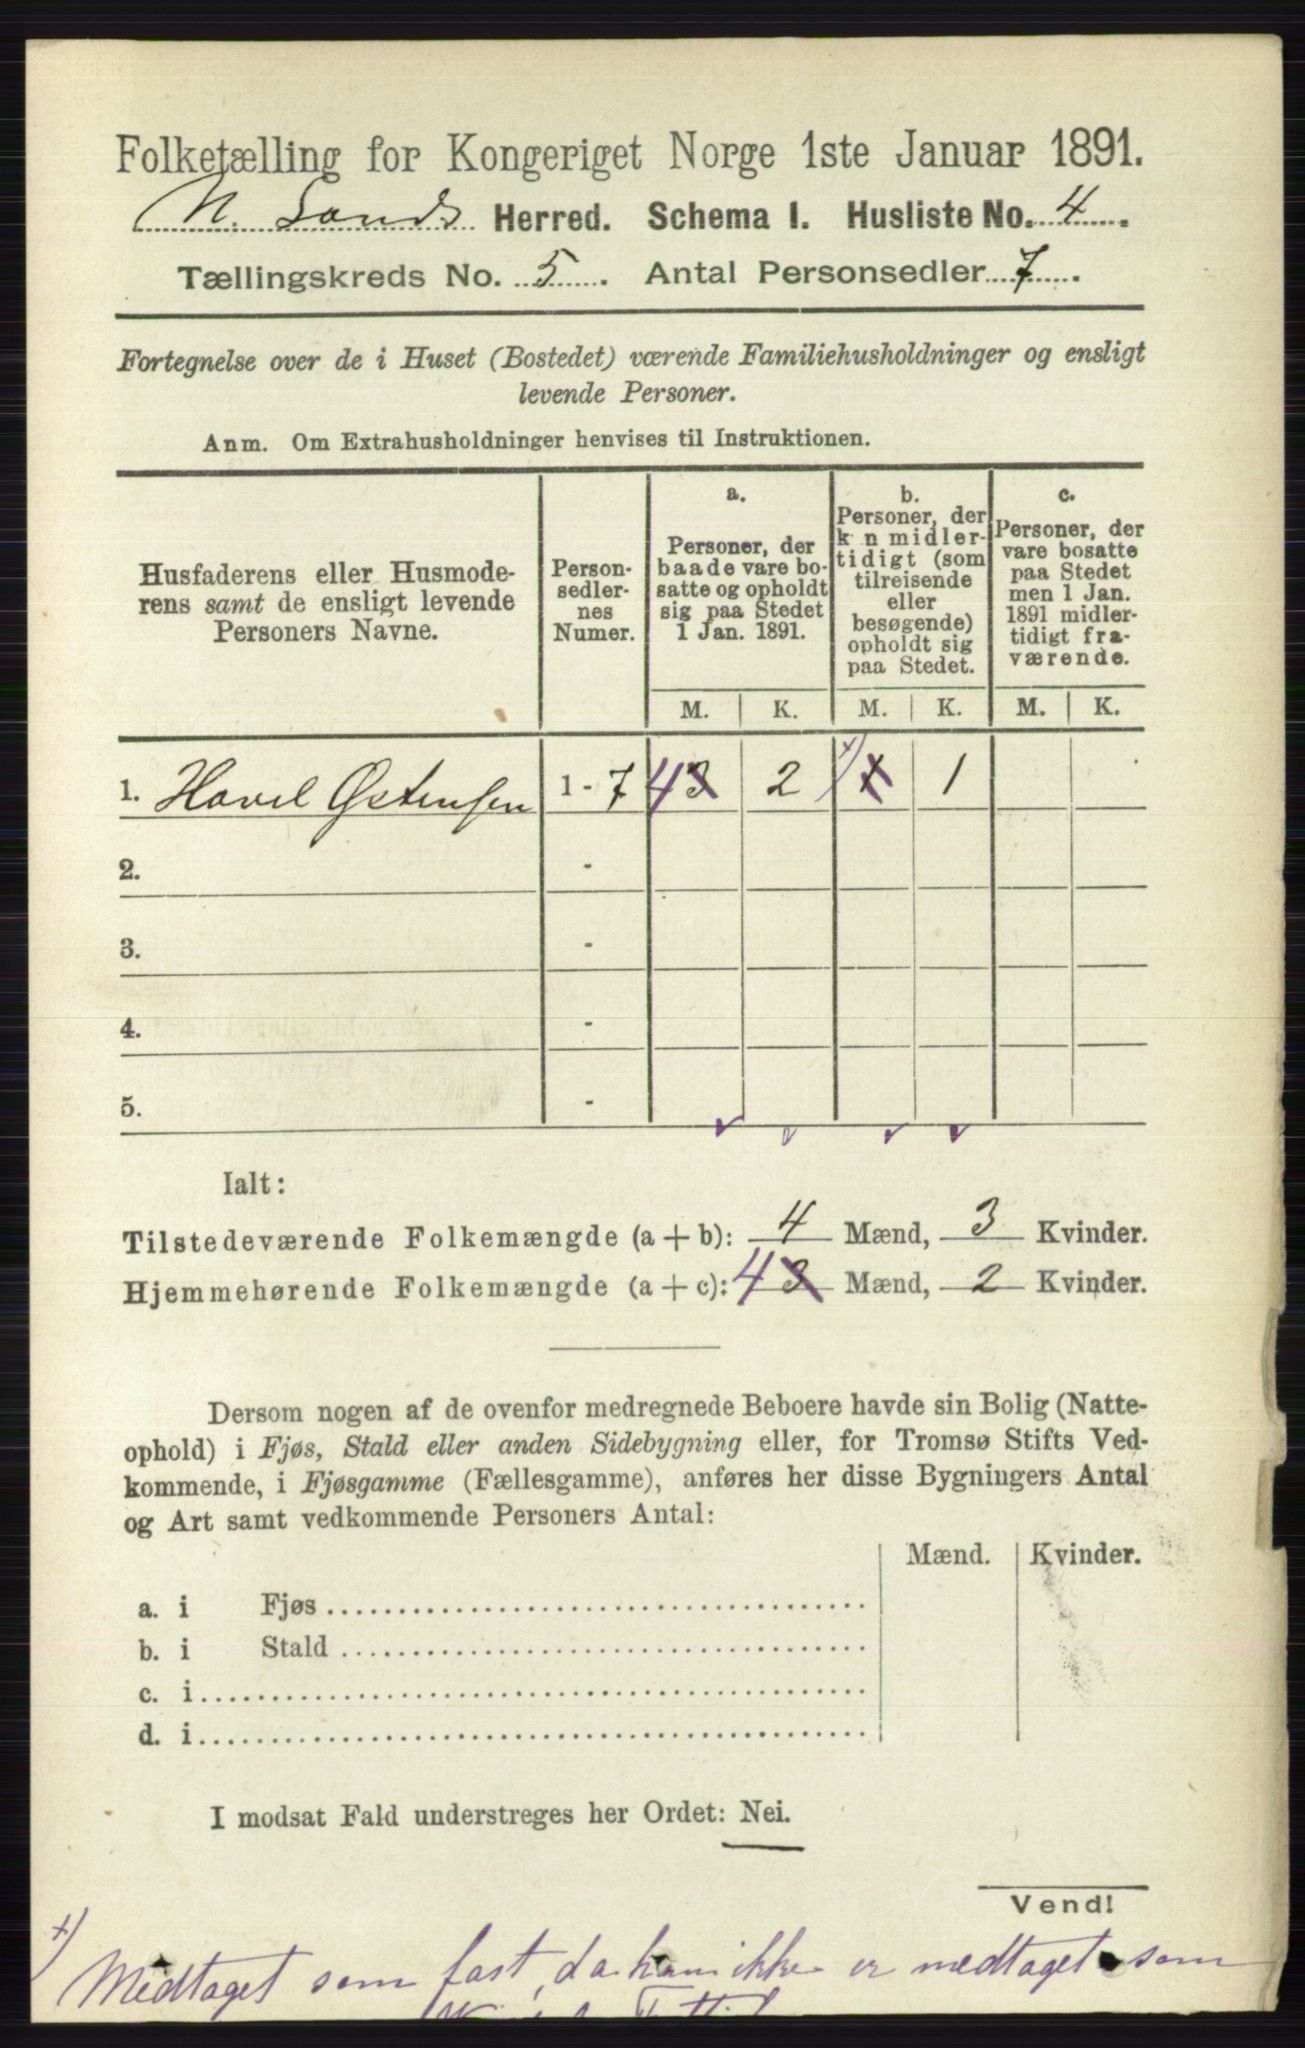 Folketælling for Kongeriget Norge 1ste Januar 1891.
N. Lands Herred. Schema I. Husliste No. 4.
Tællingskreds No. 5. Antal Personsedler 7.
Fortegnelse over de i Huset (Bostedet) værende Familiehusholdninger og ensligt
levende Personer.
Anm. Om Extrahusholdninger henvises til Instruktionen.
Husfaderens eller Husmode-
rens samt de ensligt levende
Personers Navne.
Person-
sedler-
nes
Numer.
a.
Personer, der
baade vare bo-
satte og opholdt
sig paa Stedet
1 Jan. 1891.
b.
Personer, der
k n midler-
tidigt (som
tilreisende
eller
besøgende)
opholdt sig
paa Stedet.
c.
Personer, der
vare bosatte
paa Stedet
men 1 Jan.
1891 midler-
tidigt fra-
værende.
M. K. M. K. M. K.
1. Hovel Østensen 1 - 7 4 3 2 x) 1 1
2. -
3. -
4. -
5. -
Ialt:
Tilstedeværende Folkemængde (a + b): 4 Mænd, 3 Kvinder.
Hjemmehørende Folkemængde (a + c): 4 3 Mænd, 2 Kvinder.
Dersom nogen af de ovenfor medregnede Beboere havde sin Bolig (Natte-
ophold) i Fjøs, Stald eller anden Sidebygning eller, for Tromsø Stifts Ved-
kommende, i Fjøsgamme (Fællesgamme), anføres her disse Bygningers Antal
og Art samt vedkommende Personers Antal:
Mænd. Kvinder.
a. i Fjøs
b. i Stald
c. i
d. i
I modsat Fald understreges her Ordet: Nei.
Vend!
x) Medtaget som fast, da han ikke er medtaget som